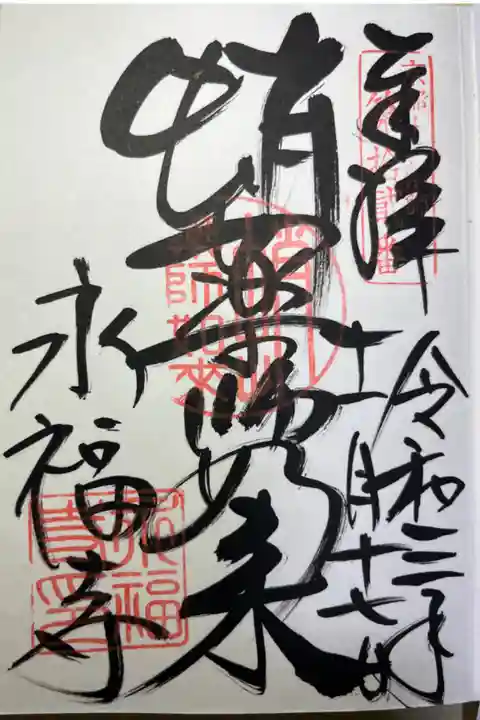 奉拝
令和三年
十一月十七日
蛸薬師如来
永福寺